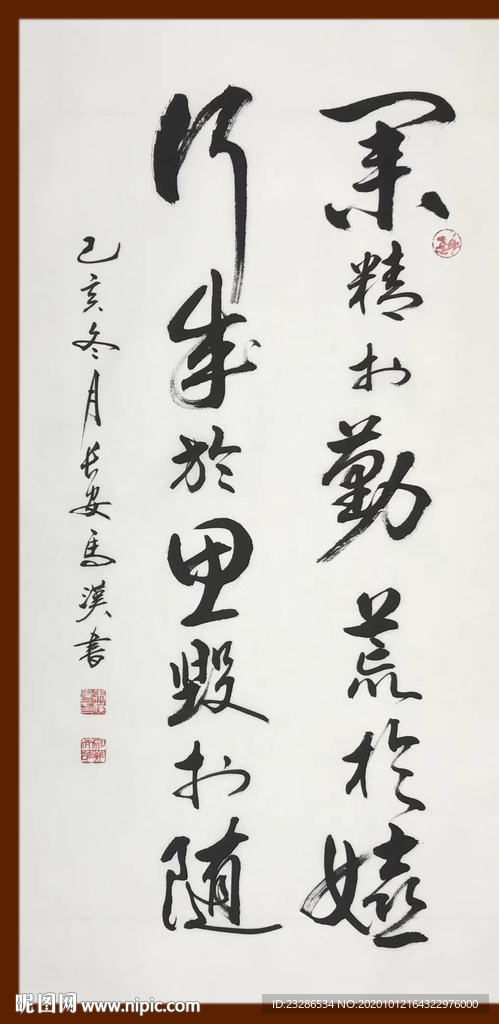 業精於勤荒於嬉
行成於思毀於随
己亥冬月长安马漢书
昵图网 www.nipic.com
ID:23286534 NO:20201012164322976000